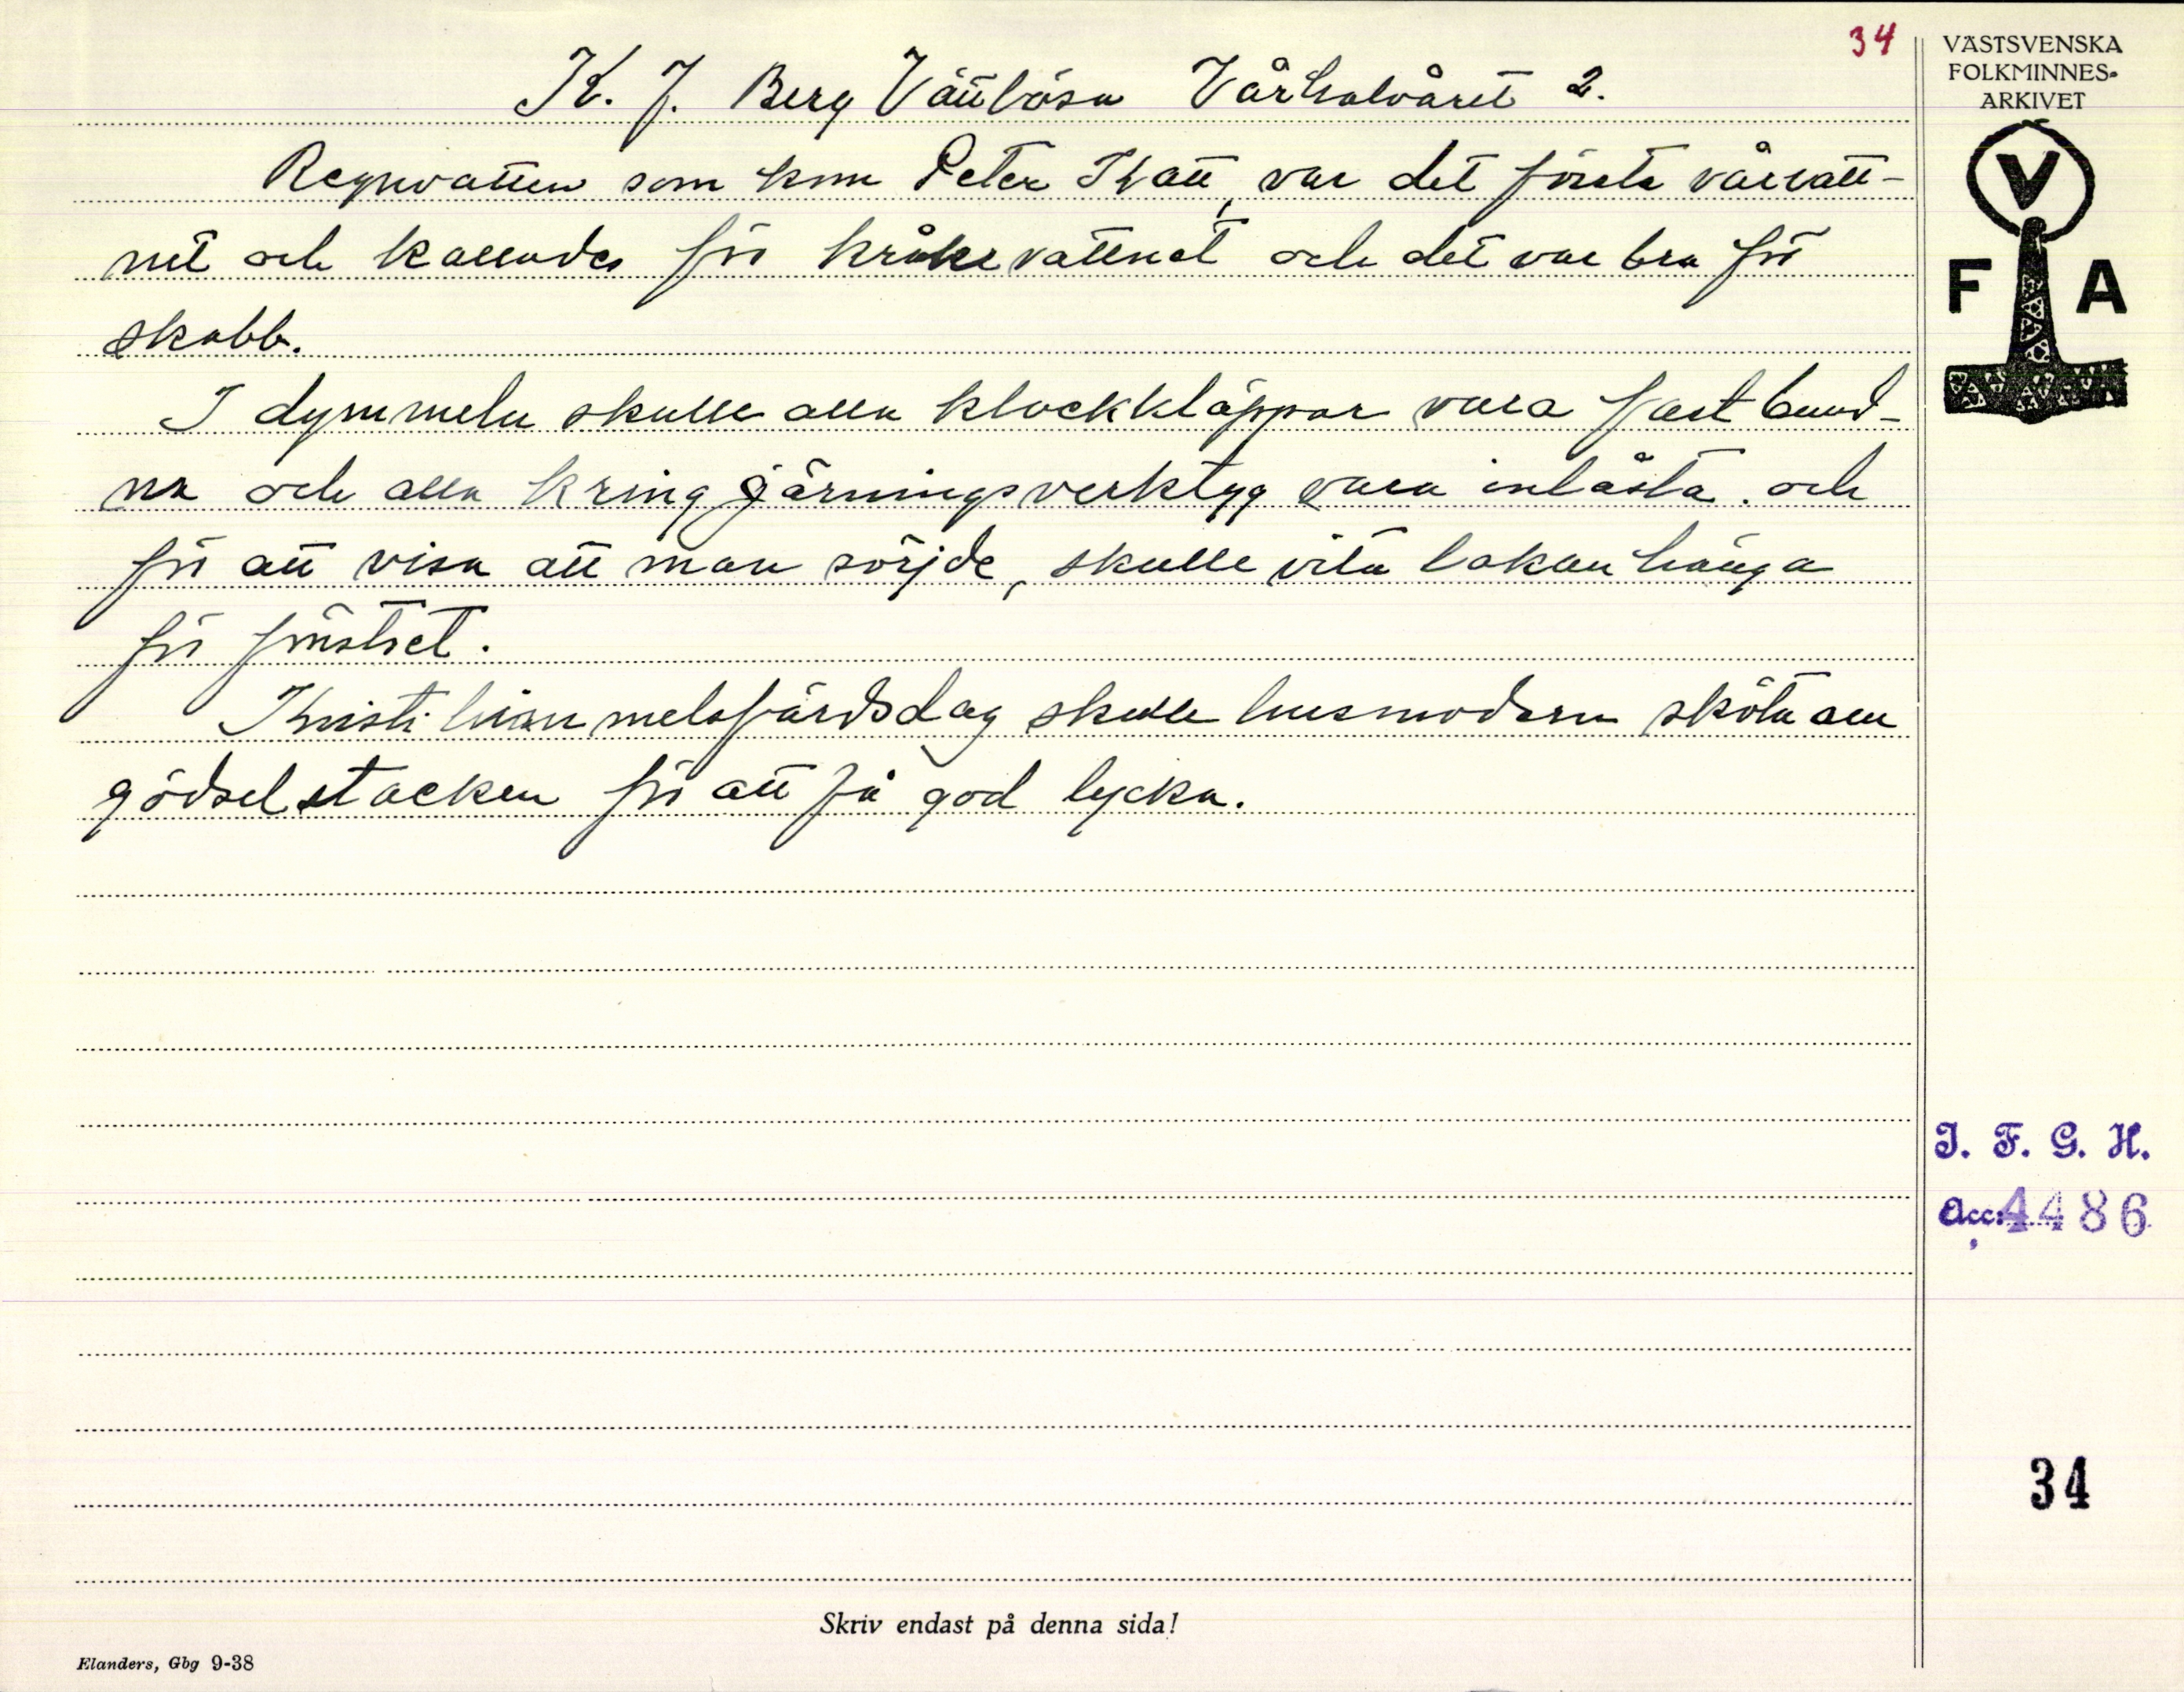 34
VÄSTSVENSKA
FOLKMINNES-
ARKIVET
V
F A
K. J. Berg Vättlösa Vårhalvåret 2.
Regnvatten som kom Peter Katt, var det första vårvatt-
net och kallades för kråkevattnet och det var bra för
skabb.
I dymmeln skulle alla klockkläppar vara fast bund-
na och alla kringgärningsverktyg vara inlåsta. och
för att visa att man sörjde, skulle vita lakan hänga
för fönstret.
Kristi himmelsfärdsdag skulle husmodern sköta om
gödselstacken för att få god lycka.
I. F. G. H.
Acc: 4486
34
Skriv endast på denna sida!
Elanders, Gbg 9-38